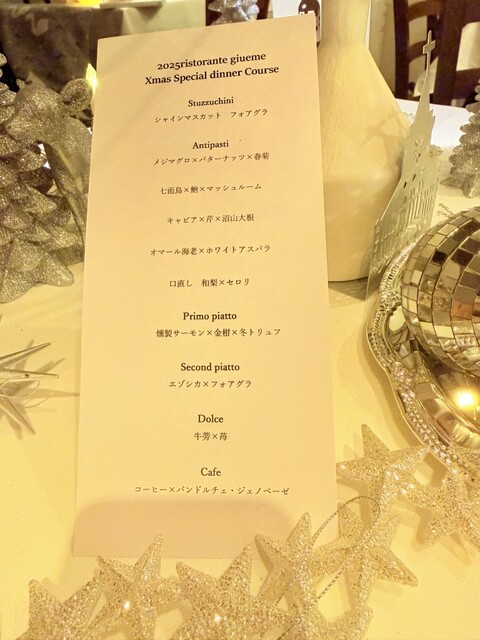 2025ristorante giueme
Xmas Special dinner Course
Stuzzuchini
シャインマスカット　フォアグラ
Antipasti
メジマグロ×バターナッツ×春菊
七面鳥×鮑×マッシュルーム
キャビア×芹×沼山大根
オマール海老×ホワイトアスパラ
口直し　和梨×セロリ
Primo piatto
燻製サーモン×金柑×冬トリュフ
Second piatto
エゾシカ×フォアグラ
Dolce
牛蒡×苺
Cafe
コーヒー×パンドルチェ・ジェノベーゼ